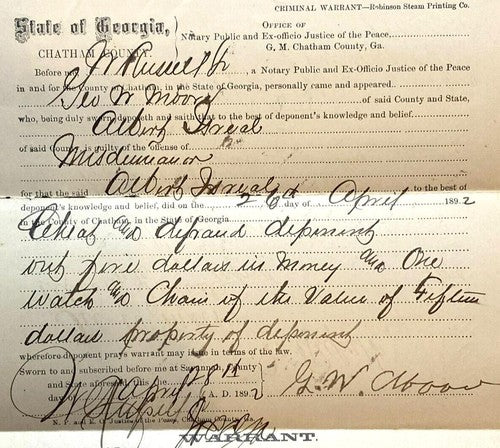 CRIMINAL WARRANT—Robinson Steam Printing Co.
State of Georgia,
CHATHAM COUNTY.
OFFICE OF
Notary Public and Ex-Officio Justice of the Peace,
G. M. Chatham County, Ga.
Before me, a Notary Public and Ex-Officio Justice of the Peace
in and for the County of Chatham, in the State of Georgia, personally came and appeared
Geo W Moore of said County and State,
who, being duly sworn deposeth and saith that to the best of deponent's knowledge and belief
Albert Isreal
of said County is guilty of the offense of
Misdemeanor
for that the said Albert Isreal to the best of
deponent's knowledge and belief, did on the 26 day of April 1892
in the County of Chatham, in the State of Georgia
Cheat and defraud deponent
out five dollars in Money and One
Watch and Chain of the Value of Fifteen
dollars property of deponent
wherefore deponent prays warrant may issue in terms of the law.
Sworn to and subscribed before me at Savannah, County
and State aforesaid, this the 28th
day of April A. D. 1892
G. W. Moore
N. P. and Ex. O. Justice of the Peace, Chatham County, Ga.
WARRANT.